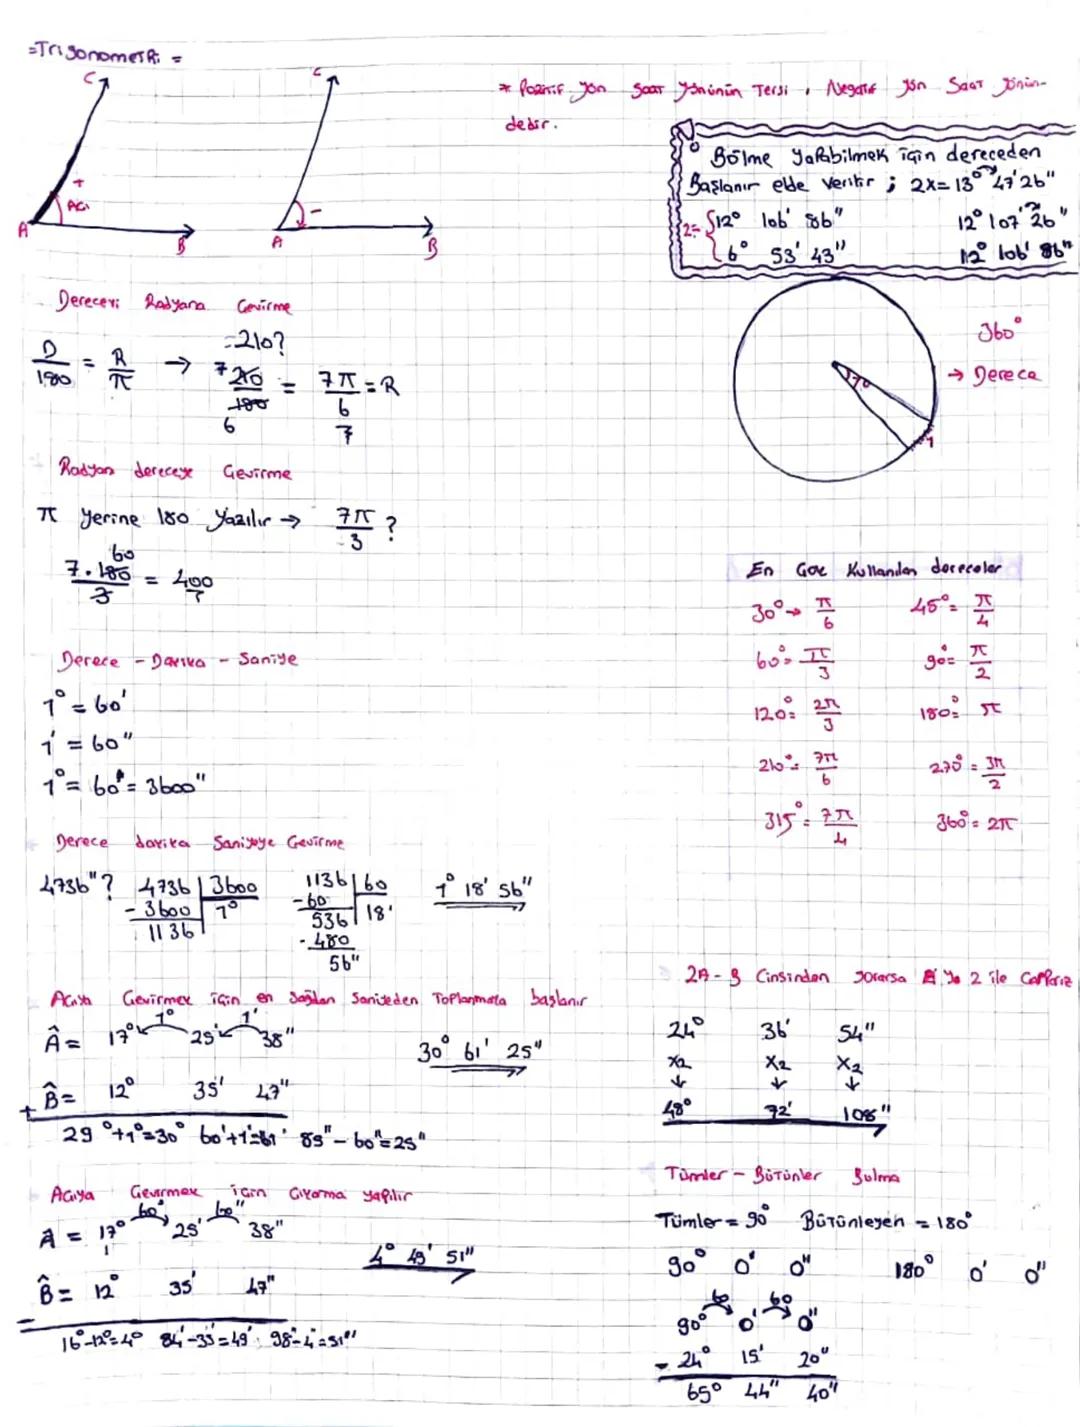 =Trigonometri =
C
C
+
Açı
-
A
B
A
B
* Pozitif yön Saat yönünün Tersi, Negatif yön Saat yönün-
dedir.
° Bölme Yapabilmek için dereceden
Başlanır elde verilir ; 2x= 13° 47' 26"
12° 107' 26"
12° 106' 86"
2= 12° 106' 86"
6° 53' 43"
Dereceyi Radyana Çevirme
-210?
D/180 = R/π → 7 210/180 6 = 7π/6 = R
7
360°
→ Derece
1°
1
Radyan dereceye Çevirme
π Yerine 180 Yazılır → 7π/3 ?
7.180/3 = 400
60
En Çok Kullanılan dereceler
30° → π/6 45° = π/4
60° = π/3 90° = π/2
120° = 2π/3 180° = π
210° = 7π/6 270° = 3π/2
315° = 7π/4 360° = 2π
Derece - Dakika - Saniye
1° = 60'
1' = 60"
1° = 60' = 3600"
Derece dakika Saniyeye Çevirme
4736"? 4736 | 3600
- 3600 | 1°
1136
1136 | 60
-60 | 18'
536
- 480
56"
1° 18' 56"
Açıya Çevirmek için en Sağdan Saniyeden Toplanmata başlanır
1° 1'
Â = 17° 25' 38"
B̂ = 12° 35' 47"
+
29°+1°=30° 60'+1'=61' 85"-60"=25"
30° 61' 25"
2A - B Cinsinden Sorarsa A ya 2 ile Çarparız
24° 36' 54"
x2 x2 x2
↓ ↓ ↓
48° 72' 108"
Açıya Çevirmek için Çıkarma yapılır
60' 60"
A = 17° 25' 38"
B̂ = 12° 35' 47"
-
16°-12°=4° 84'-35'=49' 98"-4=51"
4° 49' 51"
Tümler - Bütünler Bulma
Tümler = 90° Bütünleyen = 180°
90° 0' 0" 180° 0' 0"
60 60
90° 0' 0"
- 24° 15' 20"
65° 44" 40"